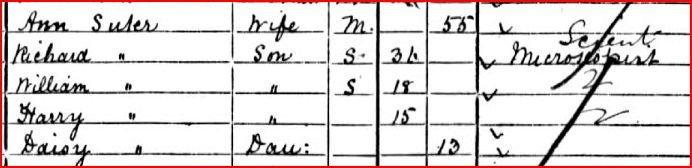 Ann Suter Wife M. 55
Richard " Son S. Scient.
Microscopist
William " " S 18 2
Harry " " 15 2
Daisy " Dau: 13